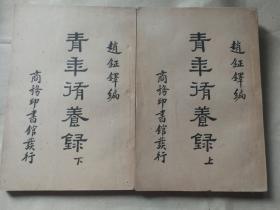 趙鉦鐸編
青年脩養錄 上
商務印書館發行
趙鉦鐸編
青年脩養錄 下
商務印書館發行